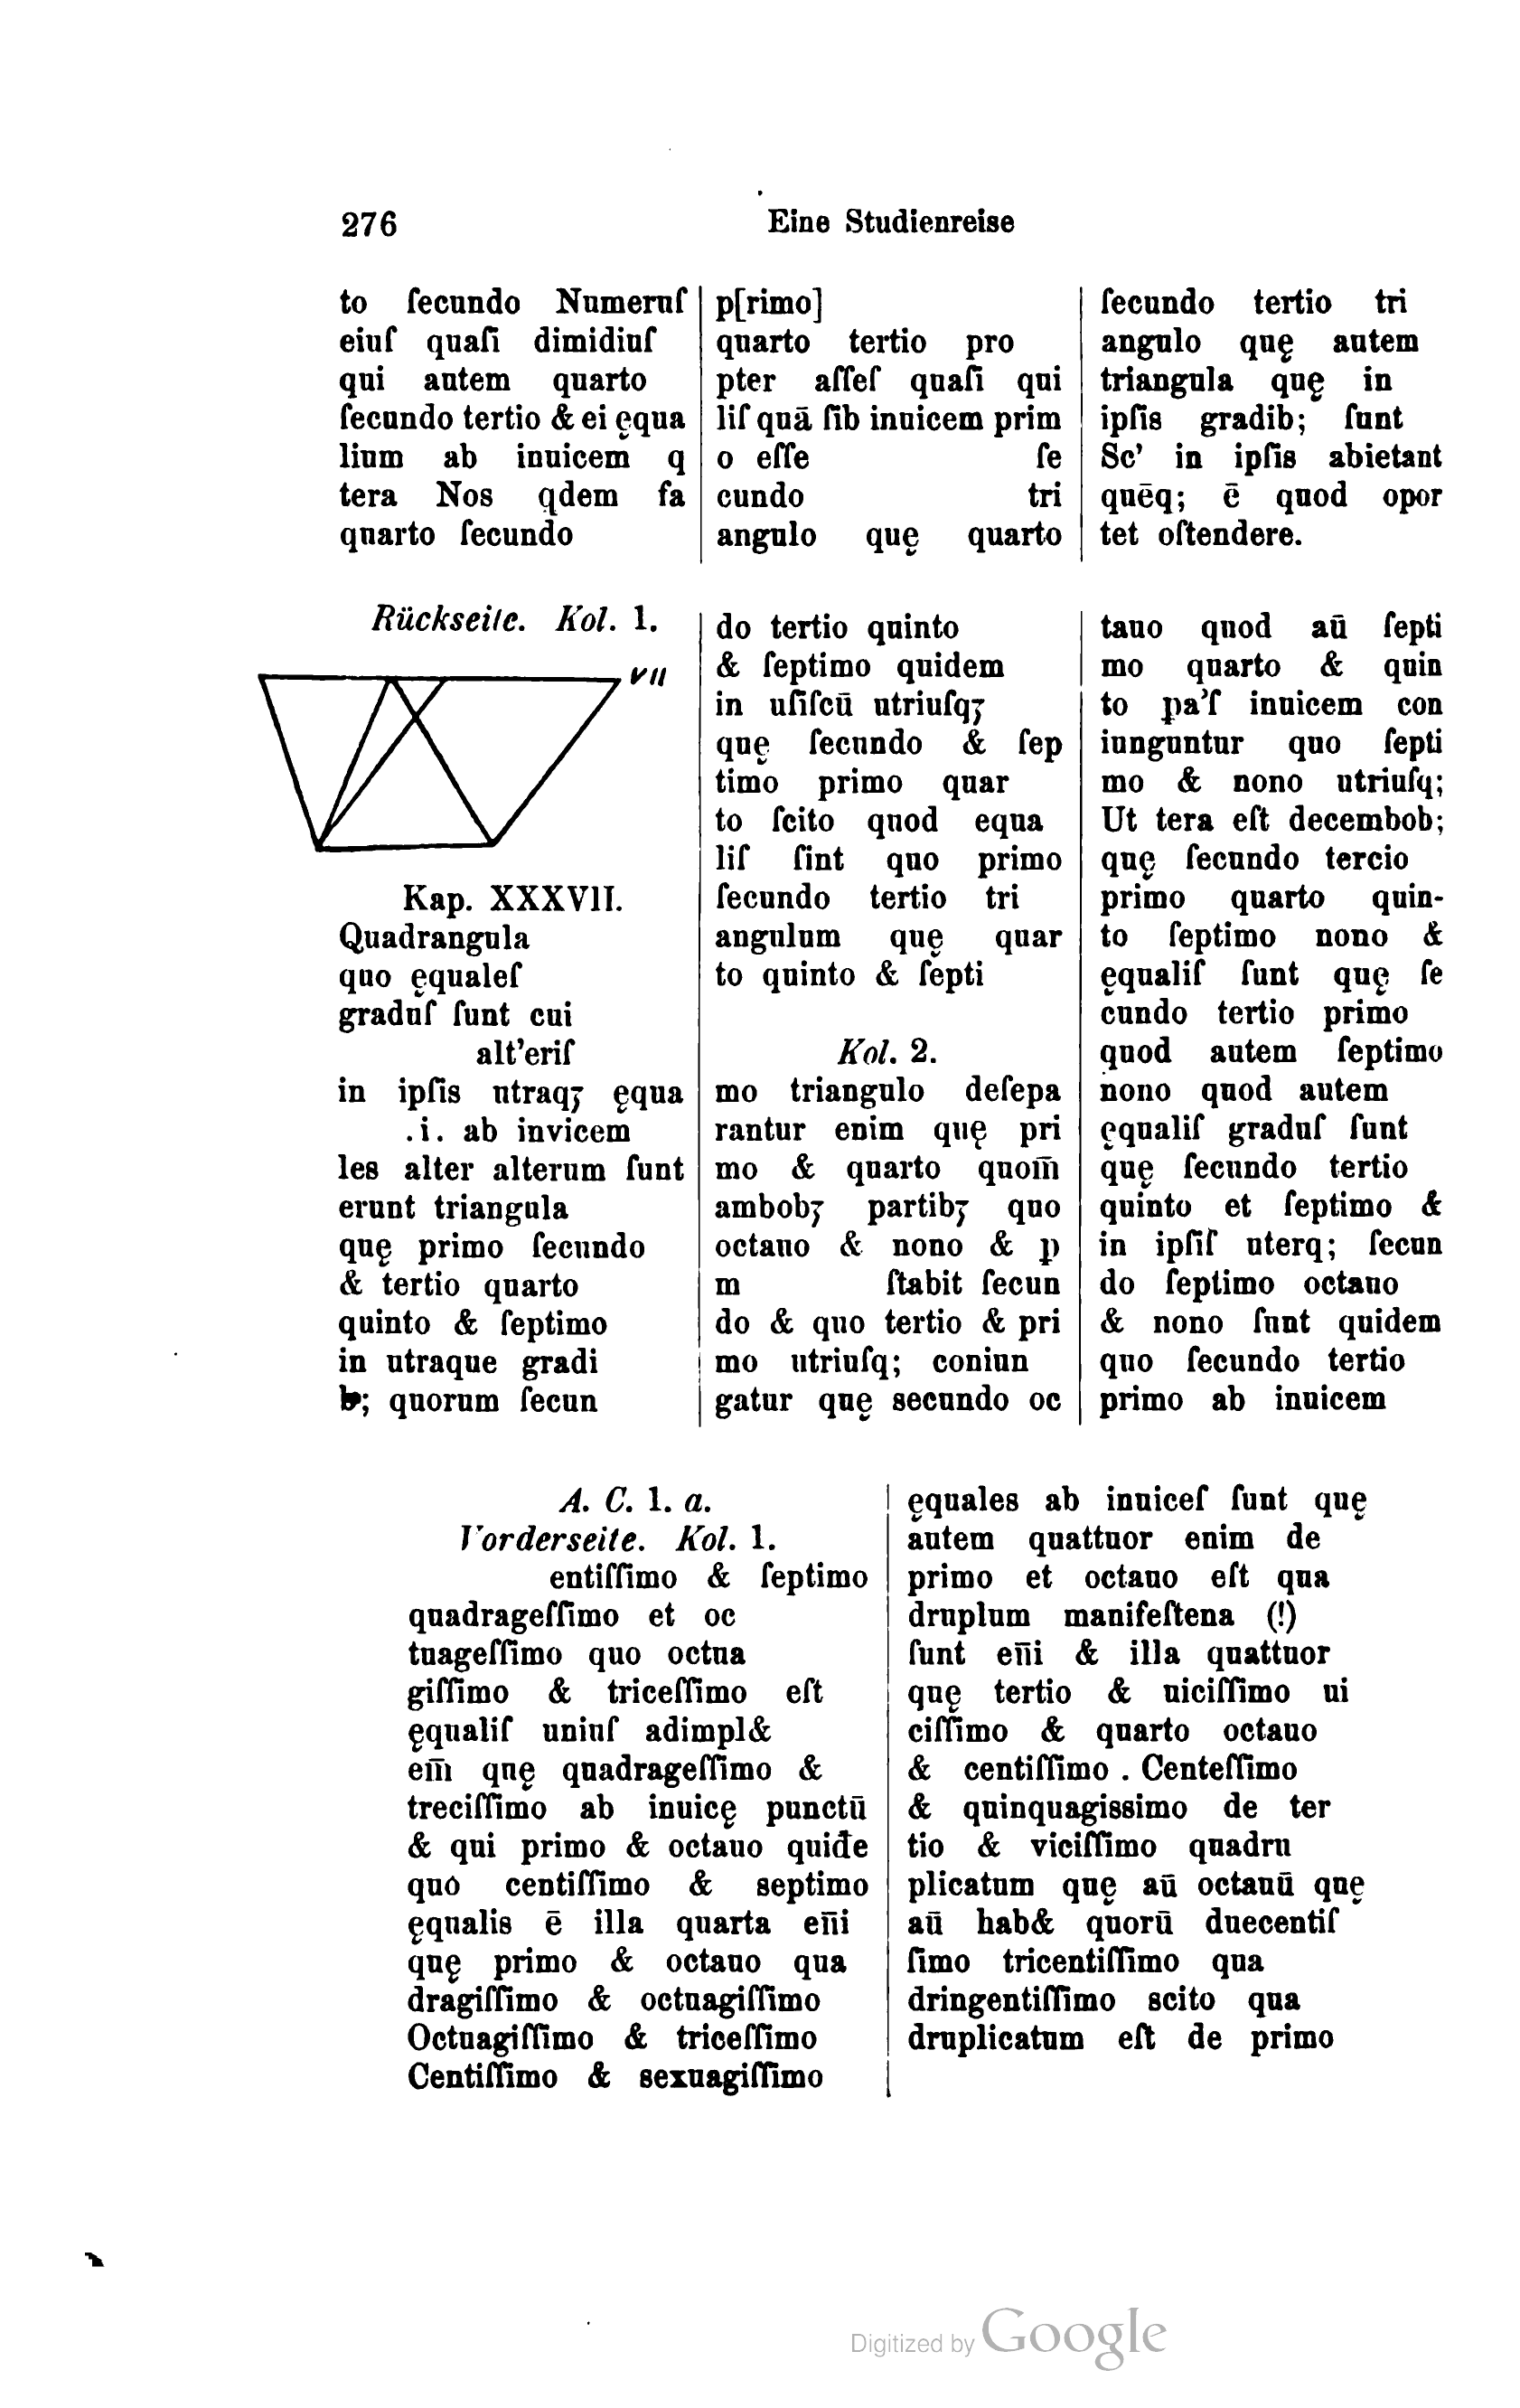 276
Eine Studienreise
to ſecundo Numeruſ
eiuſ quaſi dimidiuſ
qui autem quarto
ſecundo tertio & ei ęqua
lium ab inuicem q
tera Nos qdem fa
quarto ſecundo
p[rimo]
quarto tertio pro
pter aſſeſ quaſi qui
liſ quā ſib inuicem prim
o eſſe ſe
cundo tri
angulo quę quarto
ſecundo tertio tri
angulo quę autem
triangula quę in
ipſis gradib; ſunt
Sc’ in ipſis abietant
quēq; ē quod opor
tet oſtendere.
Rückseite. Kol. 1.
VII
Kap. XXXVII.
Quadrangula
quo ęqualeſ
graduſ ſunt cui
alt’eriſ
in ipſis utraqꝫ ęqua
.i. ab invicem
les alter alterum ſunt
erunt triangula
quę primo ſecundo
& tertio quarto
quinto & ſeptimo
in utraque gradi
b; quorum ſecun
do tertio quinto
& ſeptimo quidem
in uſiſcū utriuſqꝫ
quę ſecundo & ſep
timo primo quar
to ſcito quod equa
liſ ſint quo primo
ſecundo tertio tri
angulum quę quar
to quinto & ſepti
Kol. 2.
mo triangulo deſepa
rantur enim quę pri
mo & quarto quom̄
ambobꝫ partibꝫ quo
octauo & nono & p
m ſtabit ſecun
do & quo tertio & pri
mo utriuſq; coniun
gatur quę secundo oc
tauo quod aū ſepti
mo quarto & quin
to pa’ſ inuicem con
iunguntur quo ſepti
mo & nono utriuſq;
Ut tera eſt decembob;
quę ſecundo tercio
primo quarto quin-
to ſeptimo nono &
ęqualiſ ſunt quę ſe
cundo tertio primo
quod autem ſeptimo
nono quod autem
ęqualiſ graduſ ſunt
quę ſecundo tertio
quinto et ſeptimo &
in ipſiſ uterq; ſecun
do ſeptimo octauo
& nono ſunt quidem
quo ſecundo tertio
primo ab inuicem
A. C. 1. a.
Vorderseite. Kol. 1.
entiſſimo & ſeptimo
quadrageſſimo et oc
tuageſſimo quo octua
giſſimo & triceſſimo eſt
ęqualiſ uniuſ adimpl&
em̄ quę quadrageſſimo &
treciſſimo ab inuicę punctū
& qui primo & octauo quid̄e
quo centiſſimo & septimo
ęqualis ē illa quarta en̄i
quę primo & octauo qua
dragiſſimo & octuagiſſimo
Octuagiſſimo & triceſſimo
Centiſſimo & sexuagiſſimo
ęquales ab inuiceſ ſunt quę
autem quattuor enim de
primo et octauo eſt qua
druplum manifeſtena (!)
ſunt en̄i & illa quattuor
quę tertio & uiciſſimo ui
ciſſimo & quarto octauo
& centiſſimo . Centeſſimo
& quinquagissimo de ter
tio & viciſſimo quadru
plicatum quę aū octauū quę
aū hab& quorū duecentiſ
ſimo tricentiſſimo qua
dringentiſſimo scito qua
druplicatum eſt de primo
Digitized by Google